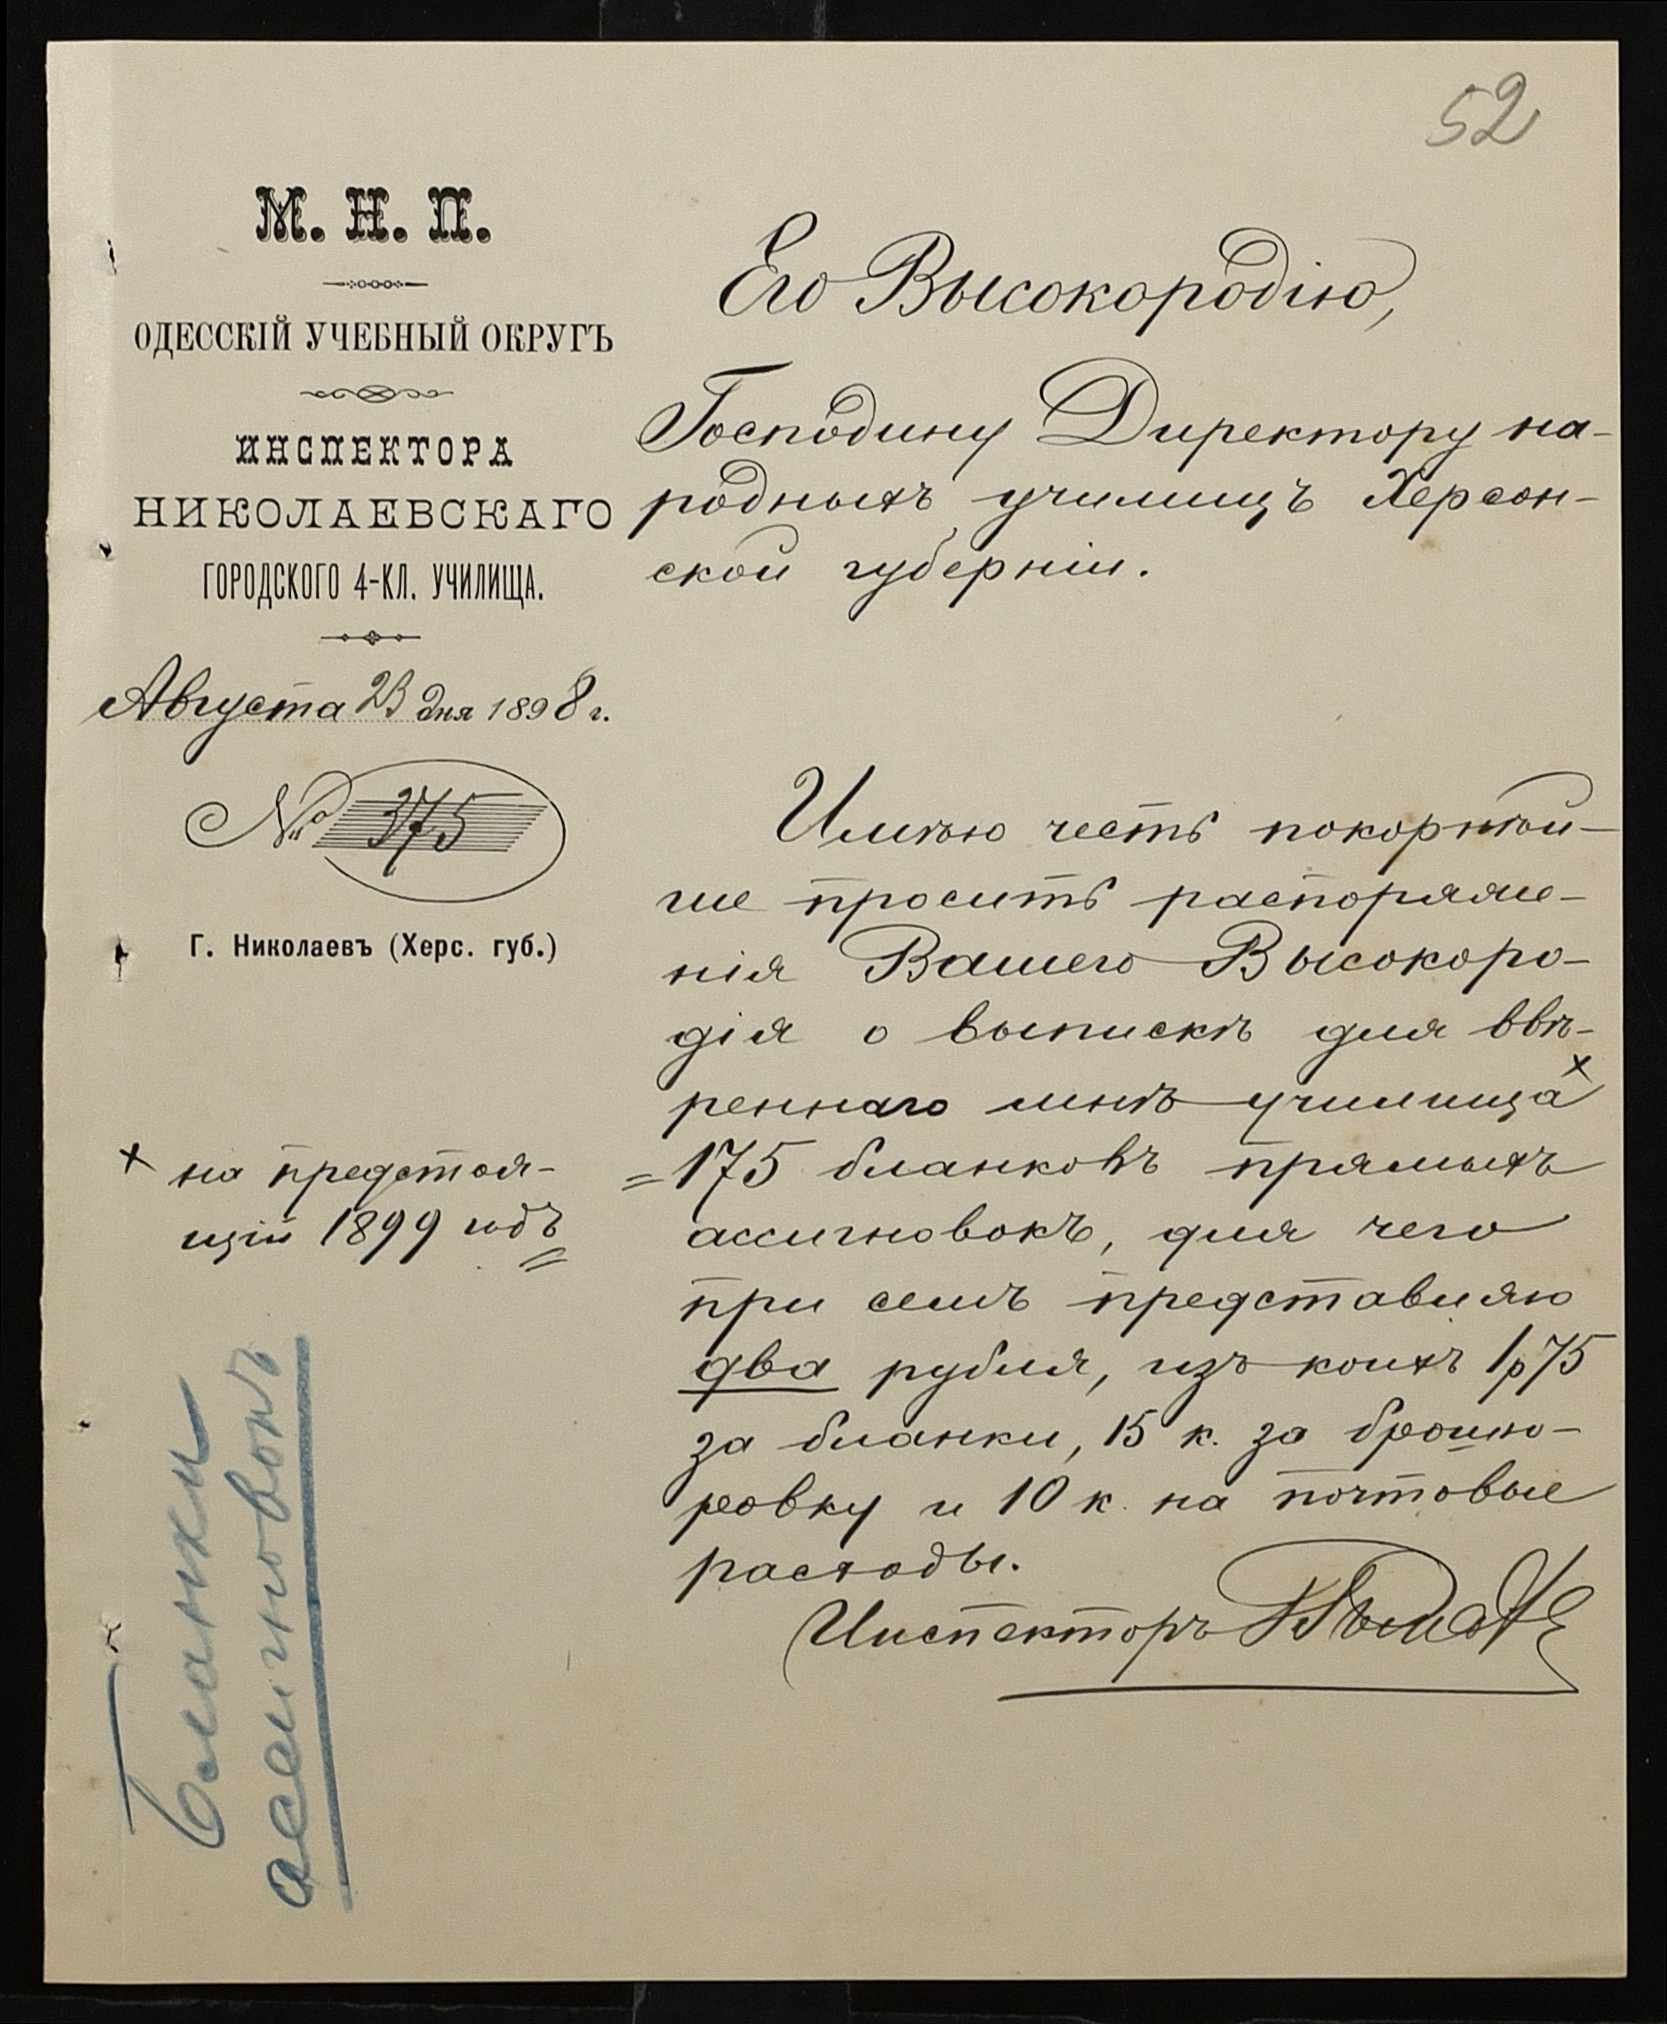 52
М. Н. П.
ОДЕССКІЙ УЧЕБНЫЙ ОКРУГЪ
ИНСПЕКТОРА
НИКОЛАЕВСКАГО
ГОРОДСКОГО 4-КЛ. УЧИЛИЩА.
Августа 23 дня 1898 г.
№ 375
Г. Николаевъ (Херс. губ.)
Его Высокородію,
Господину Директору на-
родныхъ училищъ Херсон-
ской губерніи.
Имѣю честь покорнѣй-
ше просить распоряже-
нія Вашего Высокоро-
дія о выпискѣ для ввѣ-
реннаго мнѣ училища х
= 175 бланковъ прямыхъ
ассигновокъ, для чего
при семъ представляю
два рубля, изъ коихъ 1р75
за бланки, 15 к. за брошю-
ровку и 10 к. на почтовые
расходы.
Инспекторъ
х на предстоя-
щій 1899 годъ
Бланки
ассигновокъ